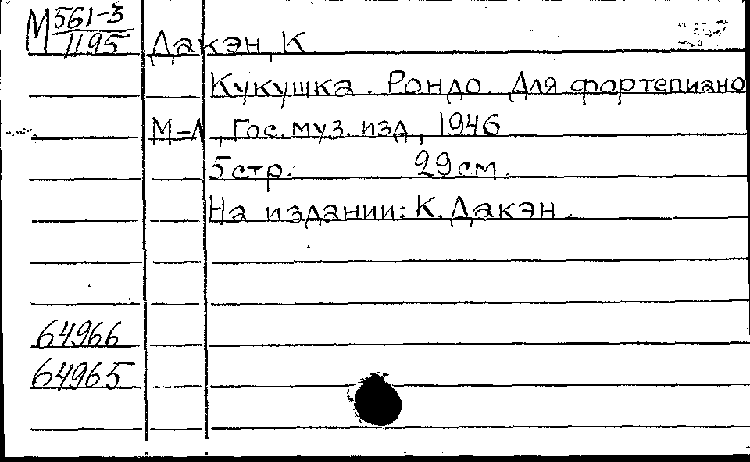 М 561-3
1195
Дакэн, К.
Кукушка. Рондо. Для фортепиано
М-Л, Гос. муз. изд., 1946
5 стр. 29 см.
На издании: К. Дакэн.
64966
64965